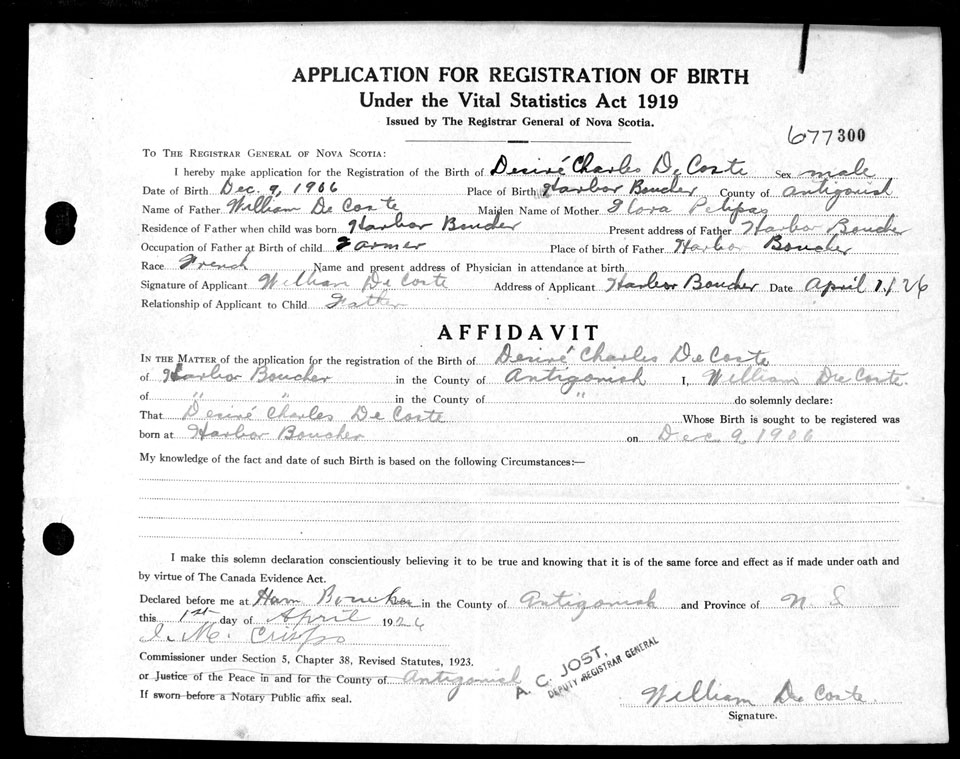 APPLICATION FOR REGISTRATION OF BIRTH
Under the Vital Statistics Act 1919
Issued by The Registrar General of Nova Scotia.
677300
To The Registrar General of Nova Scotia:
I hereby make application for the Registration of the Birth of Desiré Charles De Coste Sex male
Date of Birth Dec. 9, 1906 Place of Birth Harbor Boucher County of Antigonish
Name of Father William De Coste Maiden Name of Mother Flora Petipas
Residence of Father when child was born Harbor Boucher Present address of Father Harbor Boucher
Occupation of Father at Birth of child Farmer Place of birth of Father Harbor Boucher
Race French Name and present address of Physician in attendance at birth
Signature of Applicant William De Coste Address of Applicant Harbor Boucher Date April 1/26
Relationship of Applicant to Child Father
AFFIDAVIT
In the Matter of the application for the registration of the Birth of Desiré Charles DeCoste
of Harbor Boucher in the County of Antigonish I, William DeCoste.
of " " in the County of " do solemnly declare:
That Desiré Charles De Coste Whose Birth is sought to be registered was
born at Harbor Boucher on Dec 9, 1906
My knowledge of the fact and date of such Birth is based on the following Circumstances:—
I make this solemn declaration conscientiously believing it to be true and knowing that it is of the same force and effect as if made under oath and
by virtue of The Canada Evidence Act.
Declared before me at Boucher in the County of Antigonish and Province of N. S
this 1st day of April 1926
M. Crispo
Commissioner under Section 5, Chapter 38, Revised Statutes, 1923.
or Justice of the Peace in and for the County of Antigonish
If sworn before a Notary Public affix seal.
A. C. JOST,
DEPUTY REGISTRAR GENERAL
William De Coste
Signature.